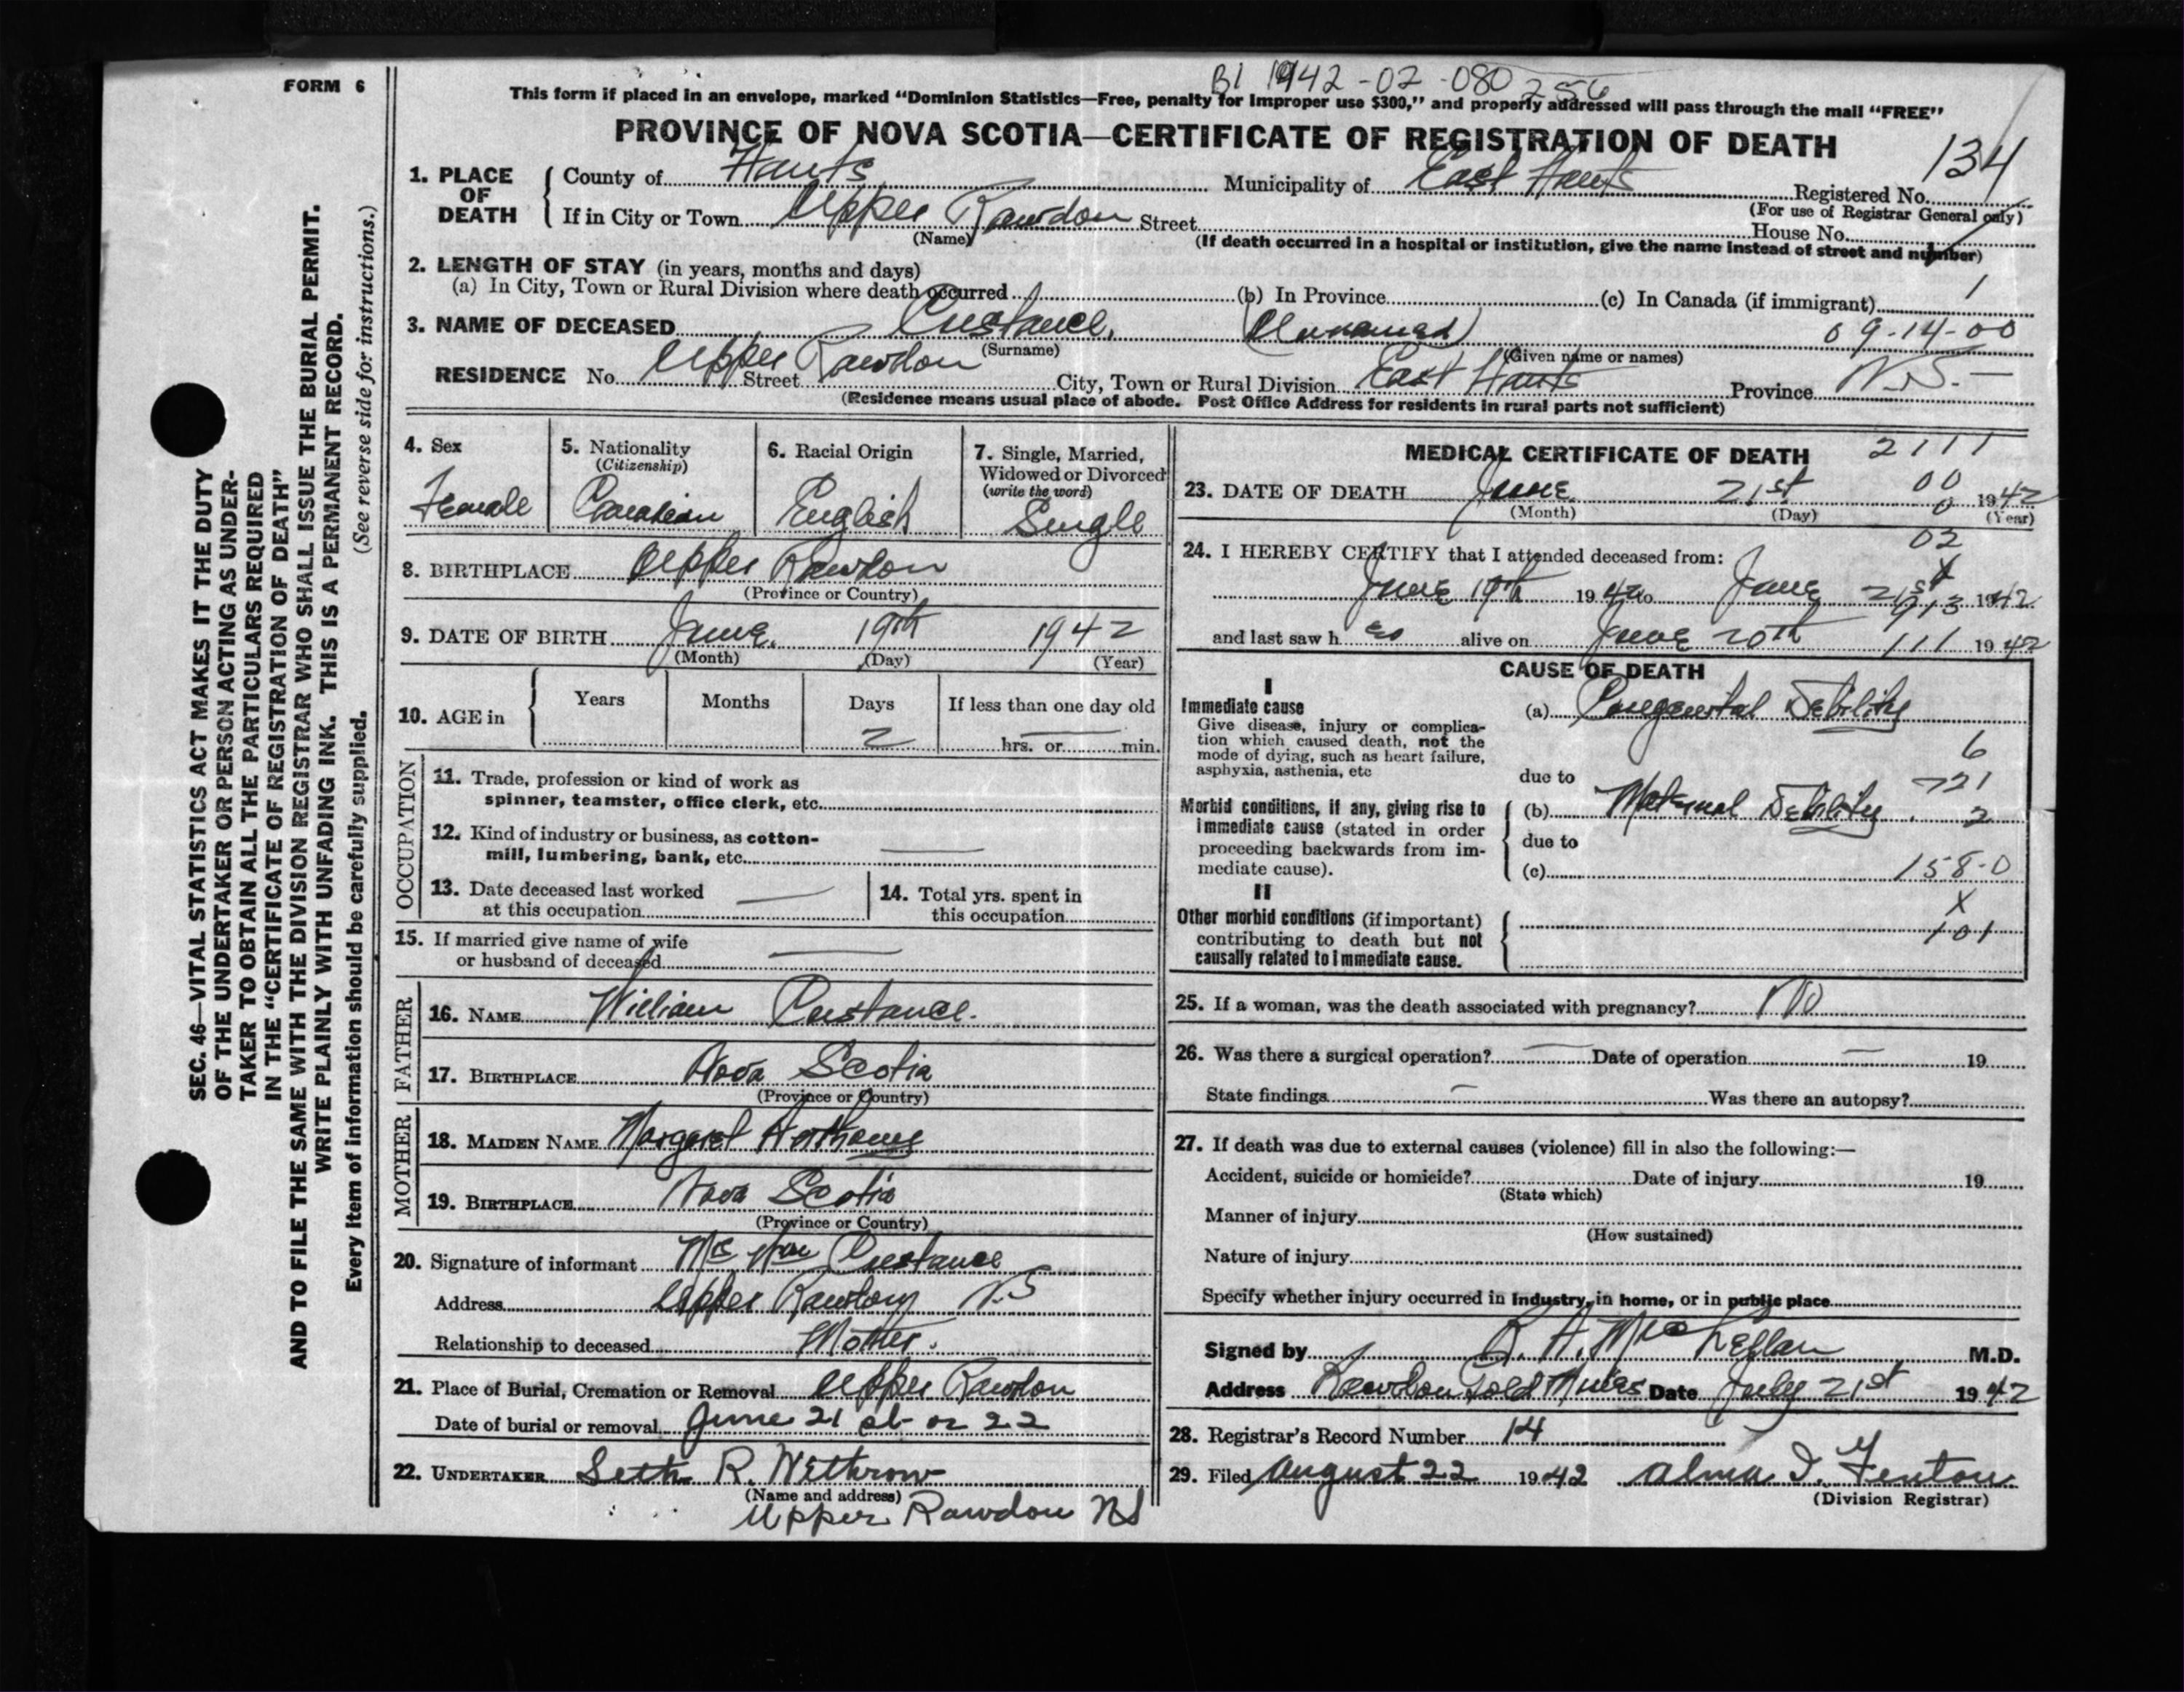 FORM 6
BI 1942-02-080256
This form if placed in an envelope, marked "Dominion Statistics—Free, penalty for improper use $300," and properly addressed will pass through the mail "FREE"
PROVINCE OF NOVA SCOTIA—CERTIFICATE OF REGISTRATION OF DEATH
134
1. PLACE OF DEATH
County of Hants Municipality of East Hants Registered No.
(For use of Registrar General only)
If in City or Town Upper Rawdon Street House No.
(Name) (If death occurred in a hospital or institution, give the name instead of street and number)
2. LENGTH OF STAY (in years, months and days)
(a) In City, Town or Rural Division where death occurred (b) In Province (c) In Canada (if immigrant) 1
3. NAME OF DECEASED Custance, (Unnamed) 09-14-00
(Surname) (Given name or names)
RESIDENCE No. Upper Rawdon Street City, Town or Rural Division East Hants Province N.S.—
(Residence means usual place of abode. Post Office Address for residents in rural parts not sufficient)
4. Sex
Female
5. Nationality
(Citizenship)
Canadian
6. Racial Origin
English
7. Single, Married,
Widowed or Divorced
(write the word)
Single
8. BIRTHPLACE Upper Rawdon
(Province or Country)
9. DATE OF BIRTH June 19th 1942
(Month) (Day) (Year)
10. AGE in
Years Months Days If less than one day old
2 hrs. or min.
OCCUPATION
11. Trade, profession or kind of work as
spinner, teamster, office clerk, etc.
12. Kind of industry or business, as cotton-
mill, lumbering, bank, etc. —
13. Date deceased last worked
at this occupation —
14. Total yrs. spent in
this occupation
15. If married give name of wife
or husband of deceased —
FATHER
16. NAME William Custance.
17. BIRTHPLACE Nova Scotia
(Province or Country)
MOTHER
18. MAIDEN NAME Margaret Anthony
19. BIRTHPLACE Nova Scotia
(Province or Country)
20. Signature of informant Mrs Wm Custance
Address Upper Rawdon N.S
Relationship to deceased Mother.
21. Place of Burial, Cremation or Removal Upper Rawdon
Date of burial or removal June 21 st or 22
22. UNDERTAKER Seth R. Withrow
(Name and address)
Upper Rawdon NS
MEDICAL CERTIFICATE OF DEATH 2111
00
23. DATE OF DEATH June 21st 0 1942
(Month) (Day) (Year)
02
24. I HEREBY CERTIFY that I attended deceased from:
June 19th 1942 to June 21st 1942
913
and last saw h er alive on June 20th 111 1942
CAUSE OF DEATH
I
Immediate cause
Give disease, injury or complica-
tion which caused death, not the
mode of dying, such as heart failure,
asphyxia, asthenia, etc
(a) Congenital Debility
6
due to 721
Morbid conditions, if any, giving rise to
immediate cause (stated in order
proceeding backwards from im-
mediate cause).
(b) Maternal Debility. 2
due to
(c) 158-0
II
X
Other morbid conditions (if important)
contributing to death but not
causally related to immediate cause.
101
25. If a woman, was the death associated with pregnancy? No
26. Was there a surgical operation? — Date of operation — 19
State findings — Was there an autopsy?
27. If death was due to external causes (violence) fill in also the following:—
Accident, suicide or homicide? Date of injury 19
(State which)
Manner of injury
(How sustained)
Nature of injury
Specify whether injury occurred in industry, in home, or in public place
Signed by R. A. MacLellan M.D.
Address Rawdon Gold Mines Date July 21st 1942
28. Registrar's Record Number 14
29. Filed August 22 1942 Alma I. Fenton
(Division Registrar)
SEC. 46—VITAL STATISTICS ACT MAKES IT THE DUTY
OF THE UNDERTAKER OR PERSON ACTING AS UNDER-
TAKER TO OBTAIN ALL THE PARTICULARS REQUIRED
IN THE "CERTIFICATE OF REGISTRATION OF DEATH"
AND TO FILE THE SAME WITH THE DIVISION REGISTRAR WHO SHALL ISSUE THE BURIAL PERMIT.
WRITE PLAINLY WITH UNFADING INK. THIS IS A PERMANENT RECORD.
Every item of information should be carefully supplied. (See reverse side for instructions.)